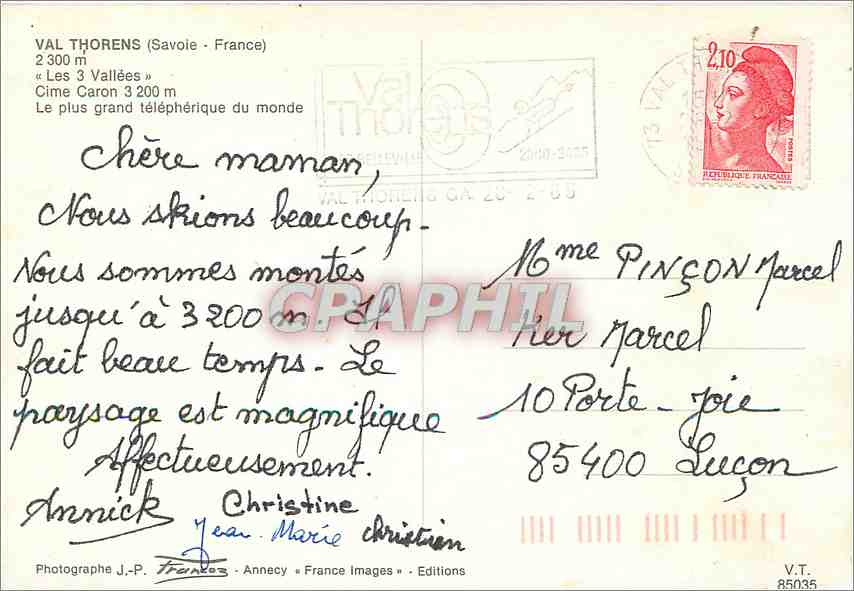 VAL THORENS (Savoie - France)
2 300 m
« Les 3 Vallées »
Cime Caron 3 200 m
Le plus grand téléphérique du monde
Val
Thorens
2300-3455
VAL THORENS CA
73 VAL
2,10
POSTES
REPUBLIQUE FRANÇAISE
Chère maman,
Nous skions beaucoup.
Nous sommes montés
jusqu'à 3200 m. Il
fait beau temps. Le
paysage est magnifique
Affectueusement.
Annick Christine
Jean-Marie Christian
Mme PINÇON Marcel
Ker Marcel
10 Porte-Joie
85400 Luçon
CPAPHIL
Photographe J.-P. Francoz - Annecy « France Images » - Editions
V.T.
85035